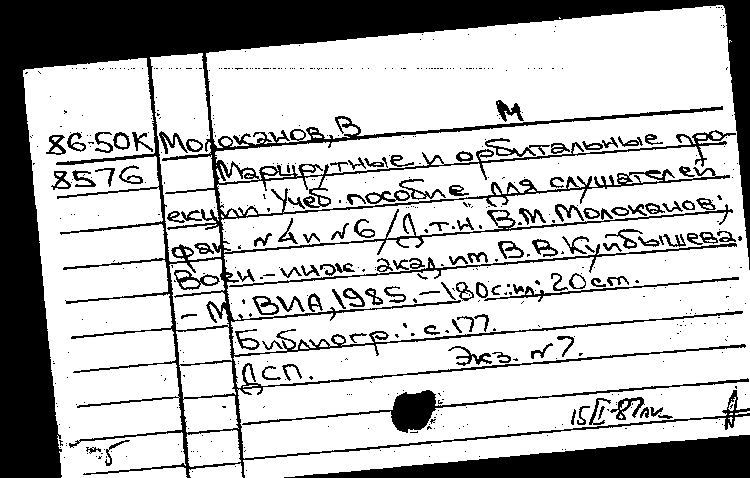 М
86-50К Молоканов, В
8576 Маршрутные и орбитальные про-
екции: Учеб. пособие для слушателей
фак. №4 и №6 / Д.т.н. В.М. Молоканов;
Воен.-инж. акад. им. В.В. Куйбышева.
- М.: ВИА, 1985. - 180с.: ил; 20 см.
Библиогр.: с. 177.
ДСП. Экз. №7.
15/II-87